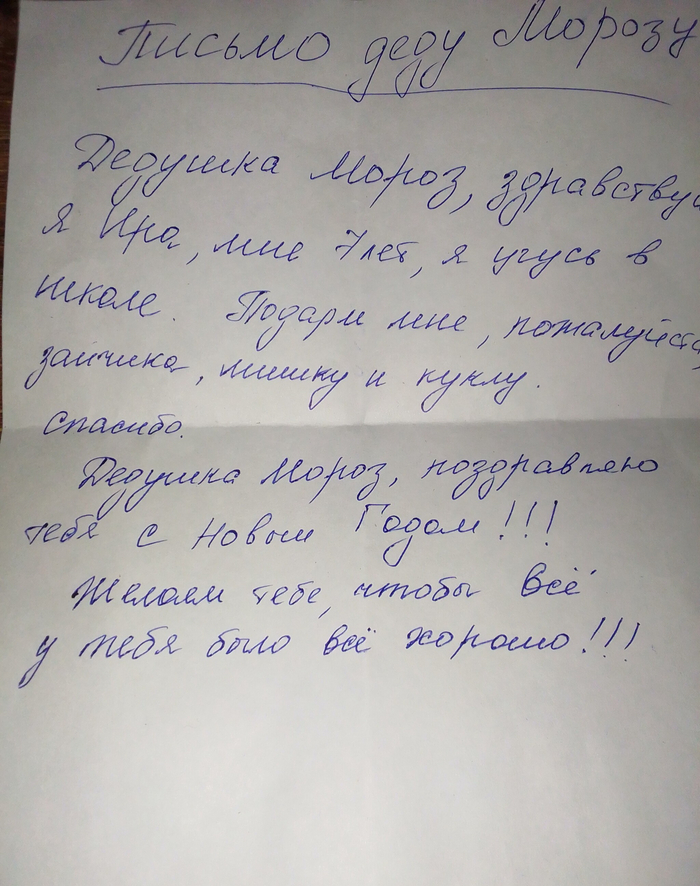 Письмо деду Морозу
Дедушка Мороз, здравствуй
я Ира, мне 7 лет, я учусь в
школе. Подари мне, пожалуйста,
зайчика, мишку и куклу.
спасибо.
Дедушка Мороз, поздравляю
тебя с Новым Годом!!!
Желаем тебе, чтобы всё
у тебя было всё хорошо!!!